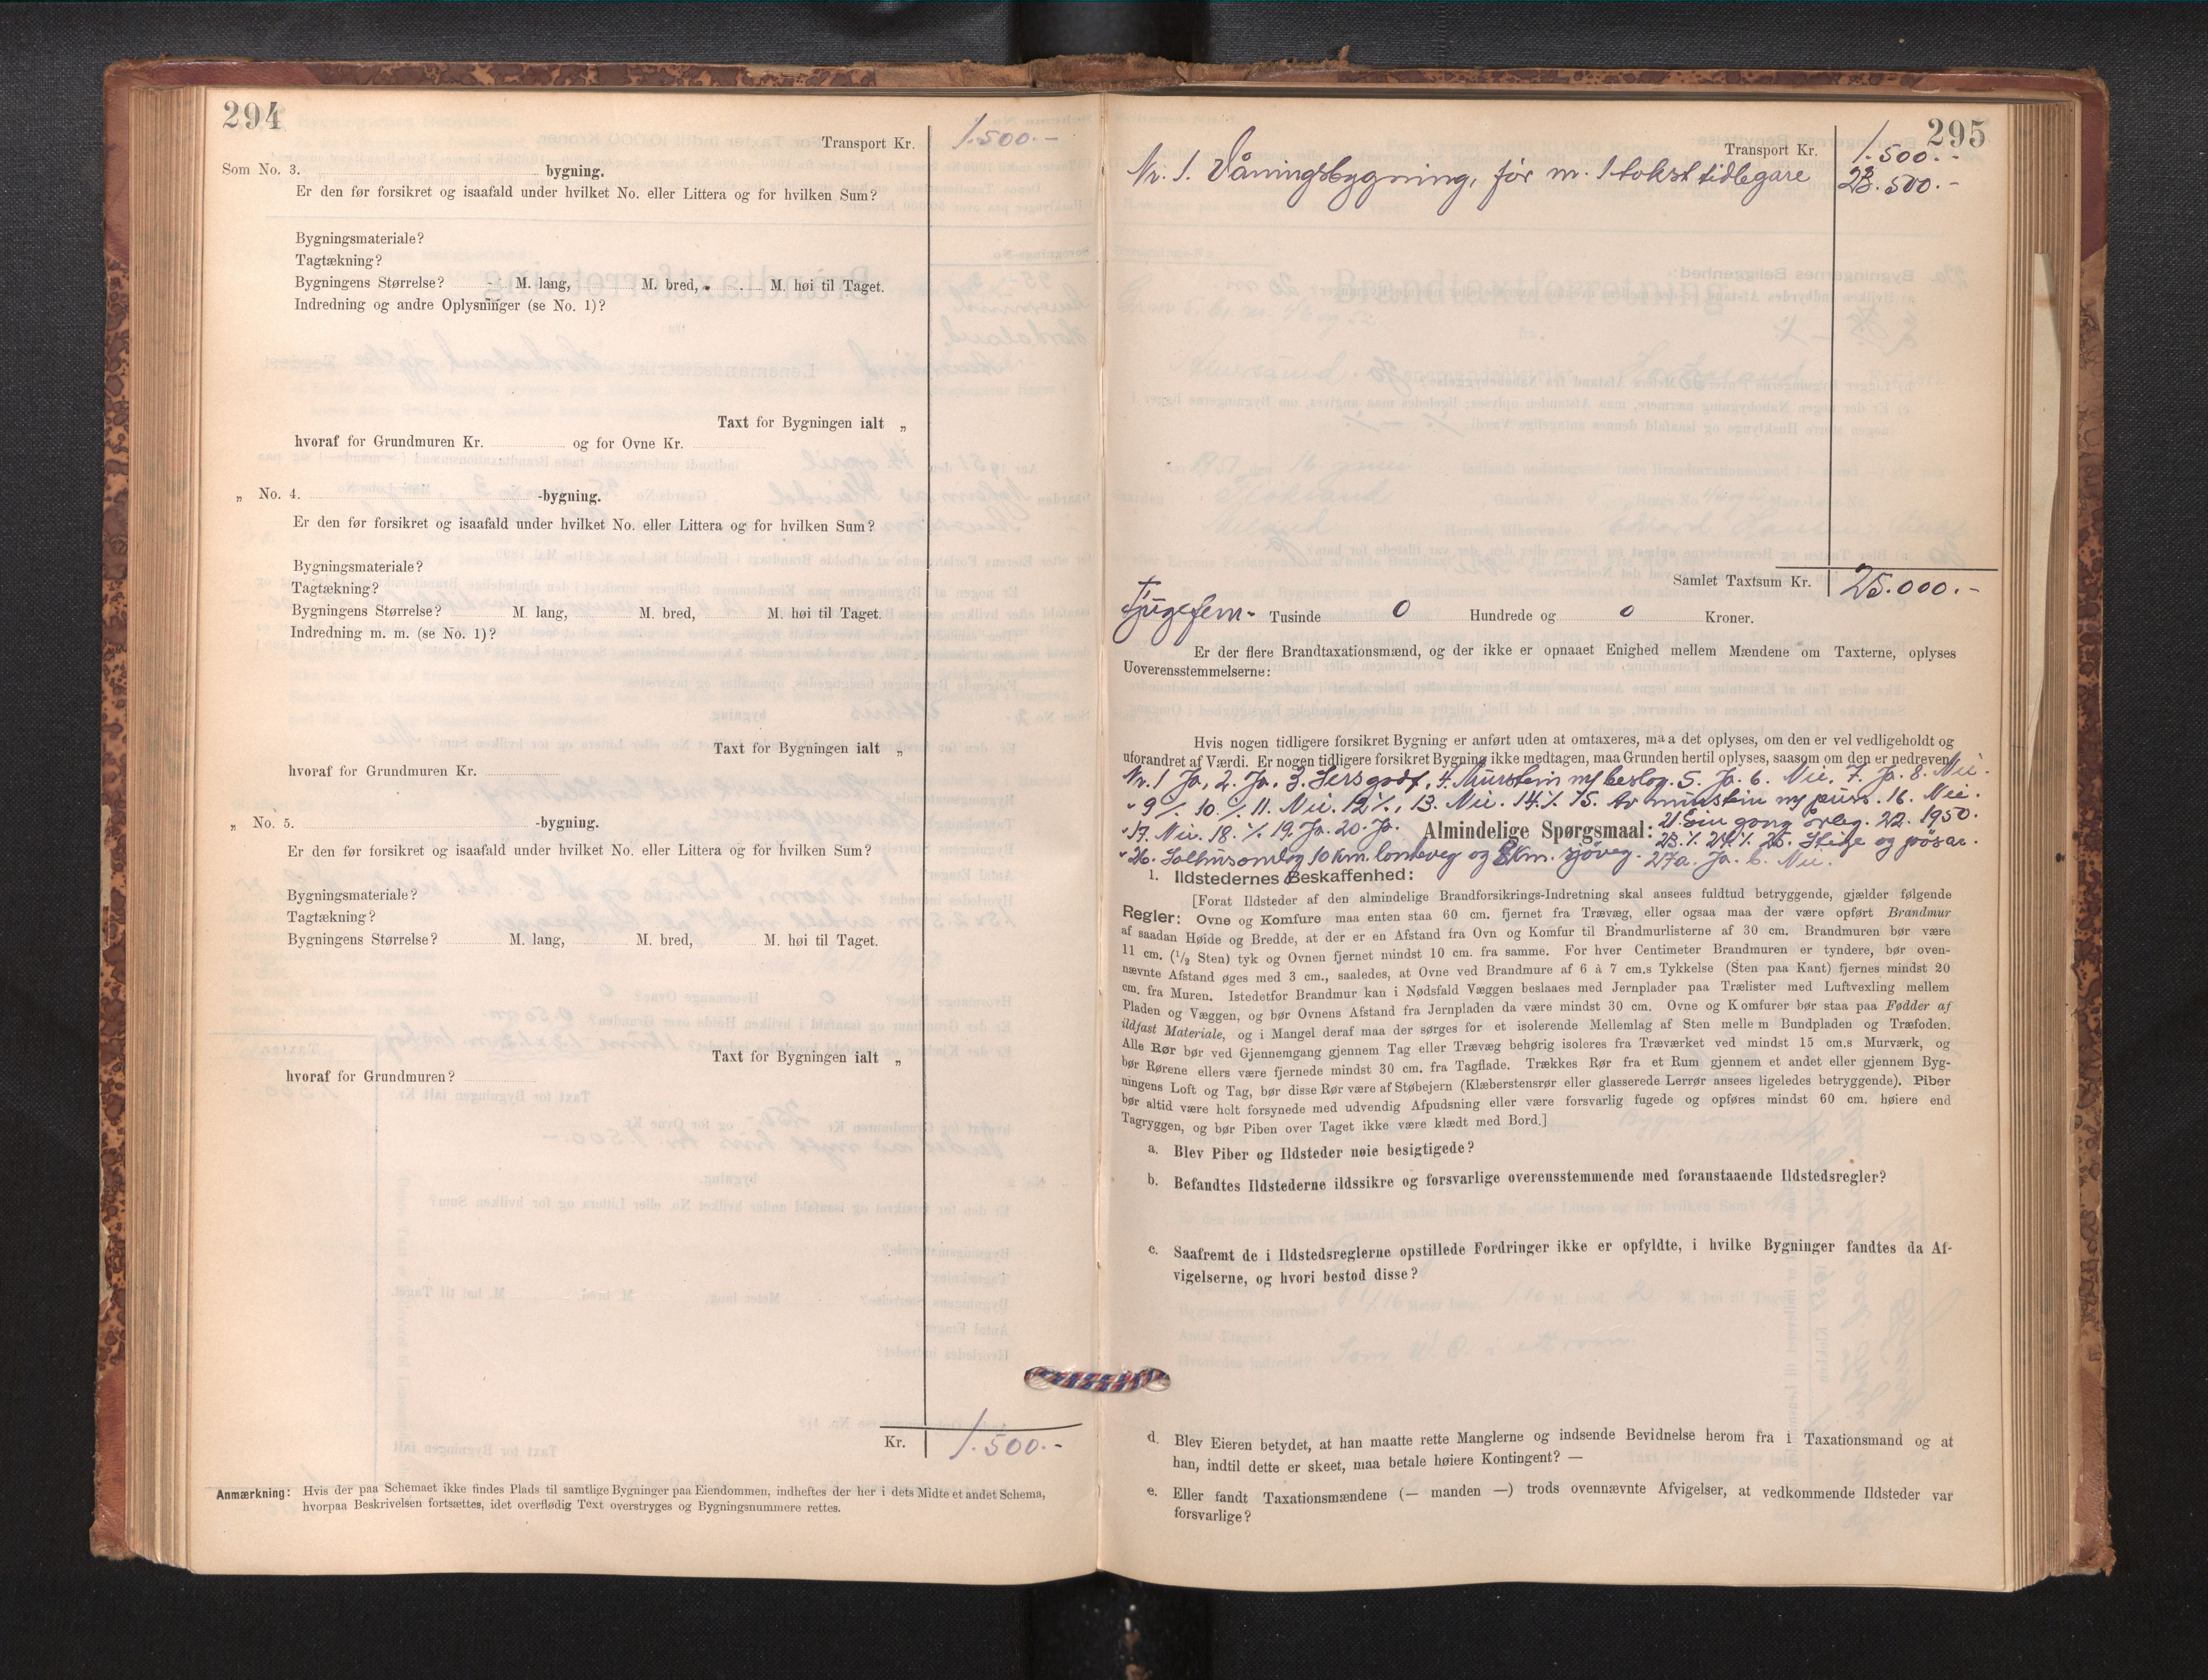 294
Transport Kr. 1.500.-
Som No. 3. bygning.
Er den før forsikret og isaafald under hvilket No. eller Littera og for hvilken Sum?
Bygningsmateriale?
Tagtækning?
Bygningens Størrelse? M. lang, M. bred, M. høi til Taget.
Indredning og andre Oplysninger (se No. 1)?
Taxt for Bygningen ialt „
hvoraf for Grundmuren Kr. og for Ovne Kr.
„ No. 4. -bygning.
Er den før forsikret og isaafald under hvilket No. eller Littera og for hvilken Sum?
Bygningsmateriale?
Tagtækning?
Bygningens Størrelse? M. lang, M. bred, M. høi til Taget.
Indredning m. m. (se No. 1)?
Taxt for Bygningen ialt „
hvoraf for Grundmuren Kr.
„ No. 5. -bygning.
Er den før forsikret og isaafald under hvilket No. eller Littera og for hvilken Sum?
Bygningsmateriale?
Tagtækning?
Bygningens Størrelse? M. lang, M. bred, M. høi til Taget.
Taxt for Bygningen ialt „
hvoraf for Grundmuren?
Kr. 1.500.-
Anmærkning: Hvis der paa Schemaet ikke findes Plads til samtlige Bygninger paa Eiendommen, indheftes der her i dets Midte et andet Schema,
hvorpaa Beskrivelsen fortsættes, idet overflødig Text overstryges og Bygningsnummere rettes.
295
Transport Kr. 1.500.-
Nr. 1. Våningsbygning, før m. 1 tokst tidlegare 23.500.-
Samlet Taxtsum Kr. 25.000.-
Tjugefem- Tusinde 0 Hundrede og 0 Kroner.
Er der flere Brandtaxationsmænd, og der ikke er opnaaet Enighed mellem Mændene om Taxterne, oplyses
Uoverensstemmelserne:
Hvis nogen tidligere forsikret Bygning er anført uden at omtaxeres, maa det oplyses, om den er vel vedligeholdt og
uforandret af Værdi. Er nogen tidligere forsikret Bygning ikke medtagen, maa Grunden hertil oplyses, saasom om den er nedreven.
Nr. 1 Ja, 2. Ja. 3. Sers godt, 4. Murstein m/ beslag. 5. Ja. 6. Nei. 7. Ja. 8. Nei.
" 9 ./. 10. ./. 11. Nei. 12 ./. 13. Nei. 14 ./. 15. Av murstein m/ puss. 16. Nei.
" 17. Nei. 18. ./. 19. Ja. 20. Ja. Almindelige Spørgsmaal: 21. Ein gong årleg. 22. 1950.
23. ./. 24. ./. 25. Stige og pøsar.
" 26. km. og km. sjøveg. 27a. Ja. b. Nei.
1. Ildstedernes Beskaffenhed:
[Forat Ildsteder af den almindelige Brandforsikrings-Indretning skal ansees fuldtud betryggende, gjælder følgende
Regler: Ovne og Komfure maa enten staa 60 cm. fjernet fra Trævæg, eller ogsaa maa der være opført Brandmur
af saadan Høide og Bredde, at der er en Afstand fra Ovn og Komfur til Brandmurlisterne af 30 cm. Brandmuren bør være
11 cm. (1/2 Sten) tyk og Ovnen fjernet mindst 10 cm. fra samme. For hver Centimeter Brandmuren er tyndere, bør oven-
nævnte Afstand øges med 3 cm., saaledes, at Ovne ved Brandmure af 6 à 7 cm.s Tykkelse (Sten paa Kant) fjernes mindst 20
cm. fra Muren. Istedetfor Brandmur kan i Nødsfald Væggen beslaaes med Jernplader paa Trælister med Luftvexling mellem
Pladen og Væggen, og bør Ovnens Afstand fra Jernpladen da være mindst 30 cm. Ovne og Komfurer bør staa paa Fødder af
ildfast Materiale, og i Mangel deraf maa der sørges for et isolerende Mellemlag af Sten mellem Bundpladen og Træfoden.
Alle Rør bør ved Gjennemgang gjennem Tag eller Trævæg behørig isoleres fra Træværket ved mindst 15 cm.s Murværk, og
bør Rørene ellers være fjernede mindst 30 cm. fra Tagflade. Trækkes Rør fra et Rum gjennem et andet eller gjennem Byg-
ningens Loft og Tag, bør disse Rør være af Støbejern (Klæberstensrør eller glasserede Lerrør ansees ligeledes betryggende). Piber
bør altid være helt forsynede med udvendig Afpudsning eller være forsvarlig fugede og opføres mindst 60 cm. høiere end
Tagryggen, og bør Piben over Taget ikke være klædt med Bord.]
a. Blev Piber og Ildsteder nøie besigtigede?
b. Befandtes Ildstederne ildssikre og forsvarlige overensstemmende med foranstaaende Ildstedsregler?
c. Saafremt de i Ildstedsreglerne opstillede Fordringer ikke er opfyldte, i hvilke Bygninger fandtes da Af-
vigelserne, og hvori bestod disse?
d. Blev Eieren betydet, at han maatte rette Manglerne og indsende Bevidnelse herom fra 1 Taxationsmand og at
han, indtil dette er skeet, maa betale høiere Kontingent? —
e. Eller fandt Taxationsmændene (— manden —) trods ovennævnte Afvigelser, at vedkommende Ildsteder var
forsvarlige?